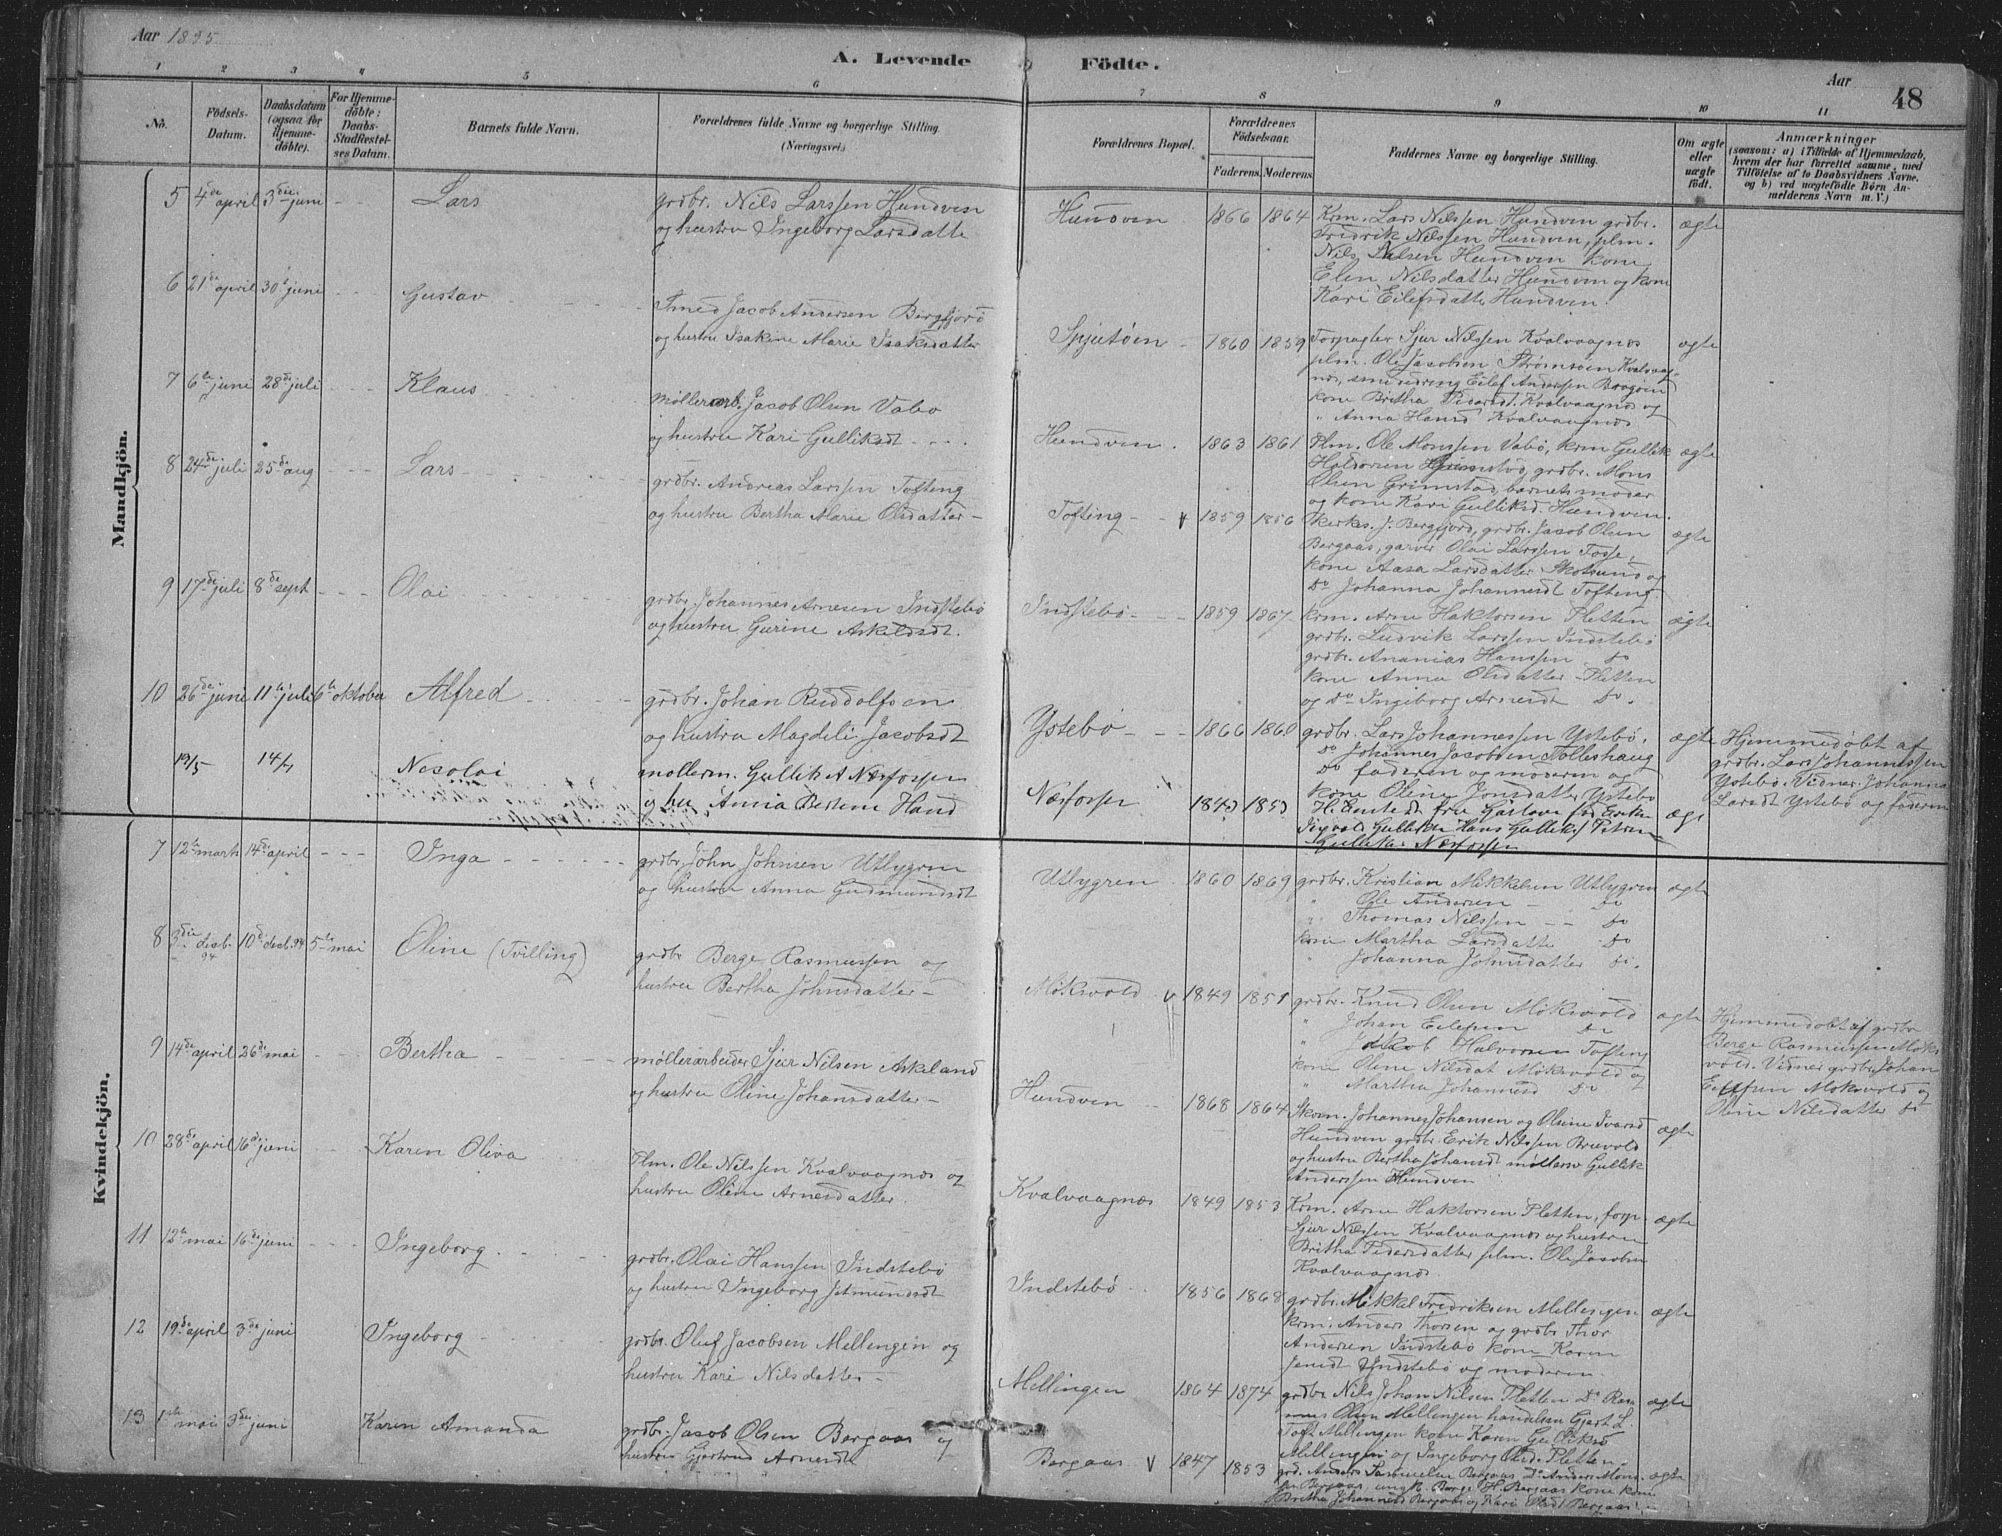 Aar 1895
A. Levende Födte.
Aar
48
1 2 3 4 5 6 7 8 9 10 11
No.
Födsels-Datum.
Daabsdatum (ogsaa for Hjemme-döbte).
For Hjemme-döbte: Daabs-Stadfæstel-ses Datum.
Barnets fulde Navn.
Forældrenes fulde Navne og borgerlige Stilling. (Næringsvei.)
Forældrenes Bopæl.
Forældrenes Födselsaar.
Faderens. Moderens.
Faddernes Navne og borgerlige Stilling.
Om ægte eller uægte födt.
Anmærkninger
(saasom: a) i Tilfælde af Hjemmedaab,
hvem der har forrettet samme, med
Tilföielse af to Daabsvidners Navne.
og b) ved uægtefödte Börn An-
melderens Navn m. V.)
Mandkjön.
5 4de april 3die juni Lars
grdbr. Nils Larssen Hundven
og hustru Ingeborg Larsdatte
Hundven 1866 1864
Krm. Lars Nilssen Hundven grdbr.
Fredrik Nilssen Hundven, plm.
Nils Nilsen Hundven kone
Elen Nilsdatter Hundven og kone
Kari Eilefsdatter Hundven.
ægte
6 21de april 30te juni Gustav
Smed Jacob Andersen Bergfjord
og hustru Isakine Marie Isaksdatter
Spjutøen 1860 1859
Forpagter Sjur Nilssen Kvalvaagnæs
plm. Ole Jacobsen Strømsøen Kvalvaag-
næs, smedsdreng Eilef Andersen
kone Britha Pedersdt. Kvalvaagnæs og
" Anna Hansd Kvalvaagnæs
ægte
7 6te juni 28de juli Klaus
møllerarb. Jacob Olsen Vabø
og hustru Kari Gulliksdt
Hundven. 1863 1861
Plm. Ole Monssen Vabø, krm Gullik
Haldorsen Grimstad, grdbr. Mons
Olsen Grimstad, barnets moder
og kone Kari Gulliksd. Hundven.
ægte
8 24de juli 25de aug Lars
grdbr. Andreas Larssen Tofting
og hustru Bertha Marie Olsdatter
Tofting 1859 1856
Kirkes. J. Bergfjord, grdbr. Jacob Olsen
Bergaas, garver Olai Larssen Fosse,
kone Aasa Larsdatter Skotsund og
Do Johanna Johannesdt Tofting
ægte
9 17de juli 8de sept Olai
grdbr. Johannes Arnesen Indstebø
og hustru Gurine Askildsdt.
Indstebø 1859 1867
krm. Arne Haktorsen Pletten
grdbr. Ludvik Larssen Indstebø
grdbr. Ananias Hanssen do
kone Anna Olsdatter Pletten
og Do Ingeborg Arnesdt Do.
ægte
10 26de juni 11te juli 6te oktober Alfred
grdbr. Johan Rudolfsen
og hustru Magdeli Jacobsdt
Ystebø 1866 1860
grdbr. Lars Johannessen Ystebø,
Do Johannes Jacobsen Tolleshaug
Do faderen og moderen og
kone Oline Jonsdatter Ystebø
ægte
Hjemmedøbt af
grdbr. Lars Johannessen
Ystebø. Vidner Johanna
Larsdt Ystebø og faderen
19/5 14/7 Nicolai
møllerm. Gullik A Næsfossen
og hu Anna Bertene Hansd
Næsfossen
ægt
Gulliks Næsfossen
Kvindekjön.
7 12te marts 14de april Inga
grdbr. John Johnsen Utbygren
og hustru Anna Gudmundsdt
Utbygren 1860 1869
grdbr. Kristian Mikkelsen Utbygren
" Ole Andersen do
" Thomas Nilssen do
kone Martha Larsdatter do
" Johanna Johnsdatter do.
ægte
8 3die desb. 94 10de desb. 94 5te mai Oline (Tvilling)
grdbr Berge Rasmussen og
hustru Bertha Johnsdatter
Mökvold 1849 1851
grdbr. Knud Olsen Mökvold
" Johan Eilefsen Do
" Jakob Halvorsen Tofting
kone Oline Nilsdat Mökvold og
" Martha Johannesd Do
ægte
Hjemmedøbt af grdbr
Berge Rasmussen Mök-
vold. Vidner grdbr. Johan
Eilefsen Mökvold og
Oline Nilsdatter do
9 14de april 26de mai Bertha
møllerarbeider Sjur Nilsen Askeland
og hustru Oline Johansdatter
Hundven 1868 1864
Skom. Johannes Johansen og Oline Ivarsd
Hundven grdbr. Erik Nilssen Brævold
og hustru Bertha Johansdt møllersv Gullik
Anderssen Hundven
ægte
10 28de april 16de juni Karen Oliva
Plm. Ole Nilssen Kvalvaagnæs og
hustru Oline Arnesdatter
Kvalvaagnæs 1849 1853
Krm. Arne Haktorsen Pletten, forp.
Sjur Nilssen Kvalvaagnæs og hustru
Britha Pedersdatter plm. Ole Jacobsen
Kvalvaagnæs.
ægte
11 12te mai 16de juni Ingeborg
grdbr. Olai Hanssen Indstebø
og hustru Ingeborg Jetmundsdt
Indstebø 1856 1868
grdbr. Mikkel Fredriksen Mellingen
krm. Anders Thorsen og grdbr Thor
Andersen Indstebø kone Karen
Jensdt Indstebø og moderen
ægte
12 19de april 3de juni Ingeborg
grdbr. Oluf Jacobsen Mellengen og
hustru Kari Nilsdatter
Mellingen 1864 1874
grdbr Nils Johan Nilsen Pletten Do Ras-
mus Olsen Mellingen handelsm Gjert L.
Toft Mellingen kone Karen Gulliksd
Mellingen og Ingeborg Olsd. Pletten
ægte
13 1ste mai 3die juni Karen Amanda
grdbr. Jacob Olsen Bergaas og
hustru Gjertrud Arnesdt
Bergaas 1847 1853
grd. Anders Samuelsen Bergaas Do Anders Mons-
sen Bergaas ungk. Berge H. Bergaas kone
Britha Johannesd Bergaas og Kari Olsdt Bergaas
ægte